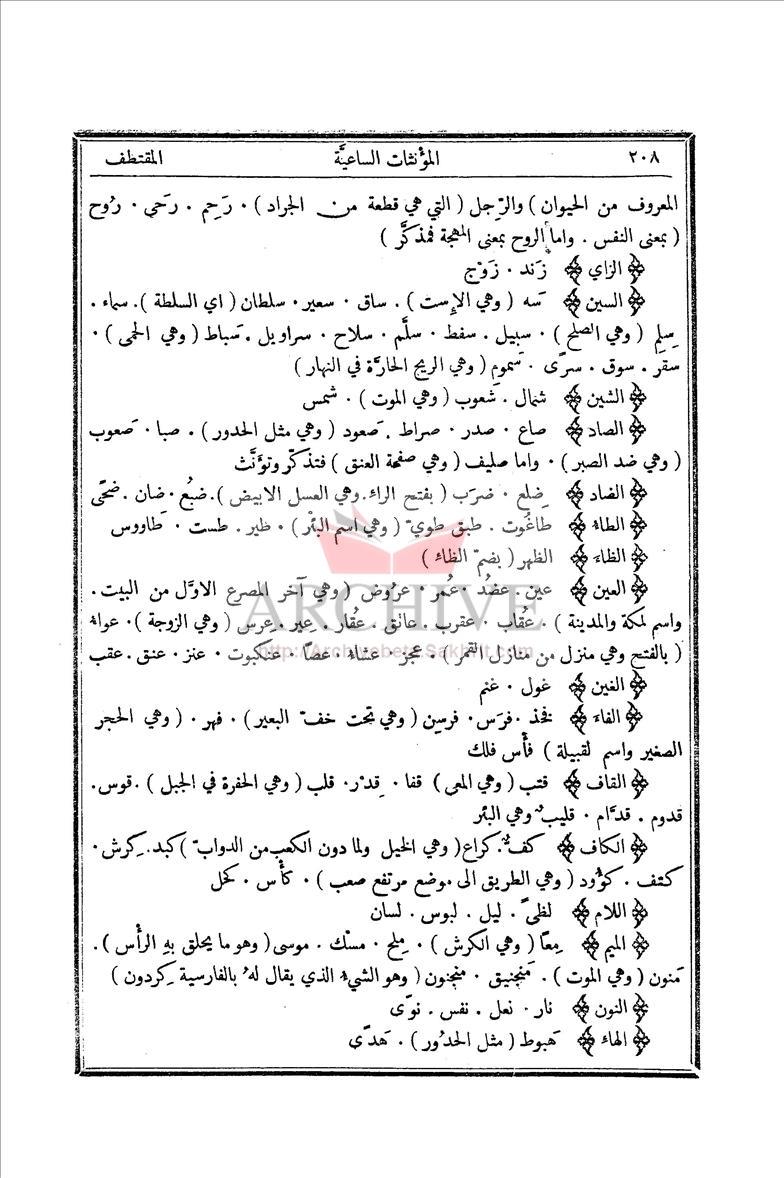 ٢٠٨ المؤنثات الساعيَّة المقتطف
المعروف من الحيوان ) والرِّجل ( التي هي قطعة من الجراد ) ٠ رَحِم . رَحَى ٠ رُوح
( بمعنى النفس . واما الروح بمعنى المهجة فمذكَّر )
﴿ الزاي ﴾ زَند ٠ زَوْج
﴿ السين ﴾ سَه ( وهي الإِست ) . ساق ٠ سعير ٠ سلطان ( اي السلطة ) . سماء .
سِلِم ( وهي الصلح ) ٠ سبيل . سفط ٠ سلَّم ٠ سلاح ٠ سراويل . سَباط ( وهي الحمى ) ٠
سَقَر . سوق . سرًى ٠ سَموم ( وهي الريح الحارَّة في النهار )
﴿ الشين ﴾ شمال . شَعوب ( وهي الموت ) ٠ شمس
﴿ الصاد ﴾ صاع ٠ صدر ٠ صراط . صَعود ( وهي مثل الحدور ) . صبا ٠ صَعوب
( وهي ضد الصبر ) ٠ واما صليف ( وهي صفحة العنق ) فتذكّر وتؤنَّث
﴿ الضاد ﴾ ضِلع ٠ ضرَب ( بفتح الراء.وهي العسل الابيض ) . ضبُع ٠ ضان . ضحًى
﴿ الطاء ﴾ طاغُوت . طبق طويّ ( وهي اسم البئْر ) ٠ ظير . طست ٠ طَاووس
﴿ الظاء ﴾ الظهر ( بضمّ الظاء )
﴿ العين ﴾ عين . عضُد ٠ عُمر ٠ عرُوض ( وهي آخر المصرع الاوَّل من البيت .
واسم لمكة والمدينة ) . عُقاب ٠ عقرب . عاتق . عُقار . عِير . عِرس ( وهي الزوجة ) ٠ عواء
( بالفتح وهي منزل من منازل القمر ) ٠ عجز ٠ عشاء ٠ عصًا ٠ عنكبوت ٠ عنز ٠ عنق . عقب
﴿ الغين ﴾ غول ٠ غنم
﴿ الفاء ﴾ فخذ . فرَس ٠ فرسِن ( وهي تحت خفّ البعير ) ٠ فهر ٠ ( وهي الحجر
الصغير واسم لقبيلة ) فأْس فلك
﴿ القاف ﴾ قتب ( وهي المعى ) قفا ٠ قِدْر ٠ قلب ( وهي الحفرة في الجبل ) . قوس .
قدوم . قدَّام ٠ قليب وهي البئر
﴿ الكاف ﴾ كفّ . كراع ( وهي الخيل ولما دون الكعب من الدوابّ ) كبد . كِرش ٠
كتف . كؤُود ( وهي الطريق الى موضع مرتفع صعب ) ٠ كأْس ٠ كحل
﴿ اللام ﴾ لظًى . ليل . لبوس . لسان
﴿ الميم ﴾ مِعًا ( وهي الكرش ) ٠ مِلح ٠ مسْك . موسى ( وهو ما يحلق بهِ الرأْس ) .
مَنون ( وهي الموت ) . مَنجنيق ٠ منجنون ( وهو الشيء الذي يقال لهُ بالفارسية كِردون )
﴿ النون ﴾ نار ٠ نعل . نفس . نوًى
﴿ الهاء ﴾ هَبوط ( مثل الحدُور ) ٠ هَدًى
ARCHIVE
http://Archivebeta.Sakhrit.com